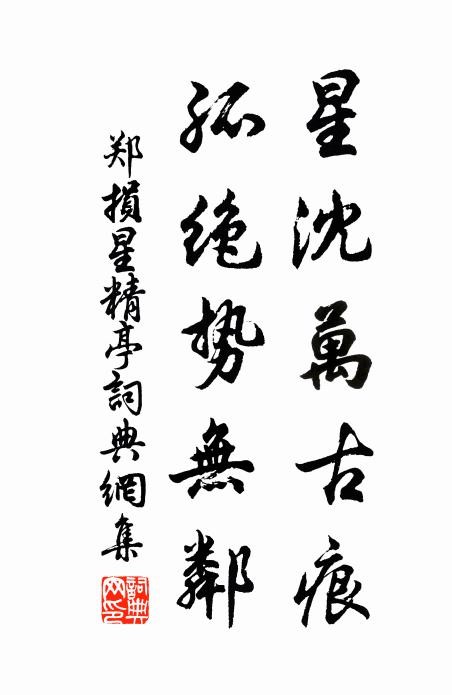 星沈萬古痕
孤绝势無鄰
郑損星精亭詞典網集
詞典網印